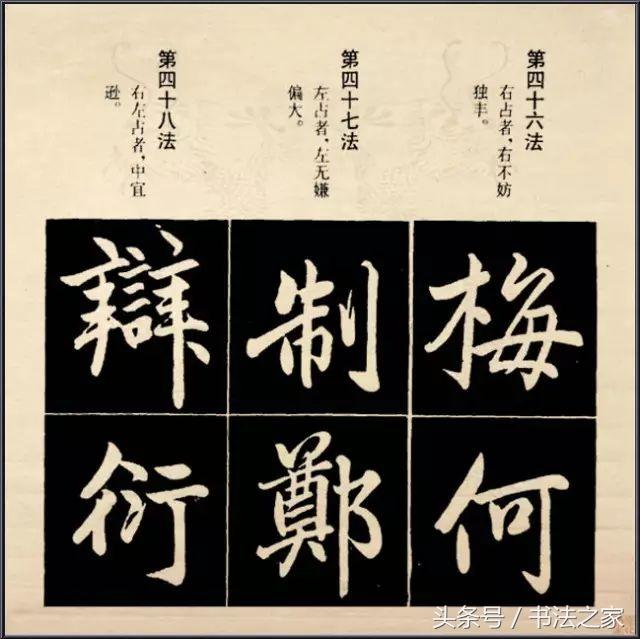 第四十六法
右占者，右不妨
独丰。
梅
何
第四十七法
左占者，左无嫌
偏大。
制
鄭
第四十八法
右左占者，中宜
逊。
辯
衍
头条号 / 书法之家